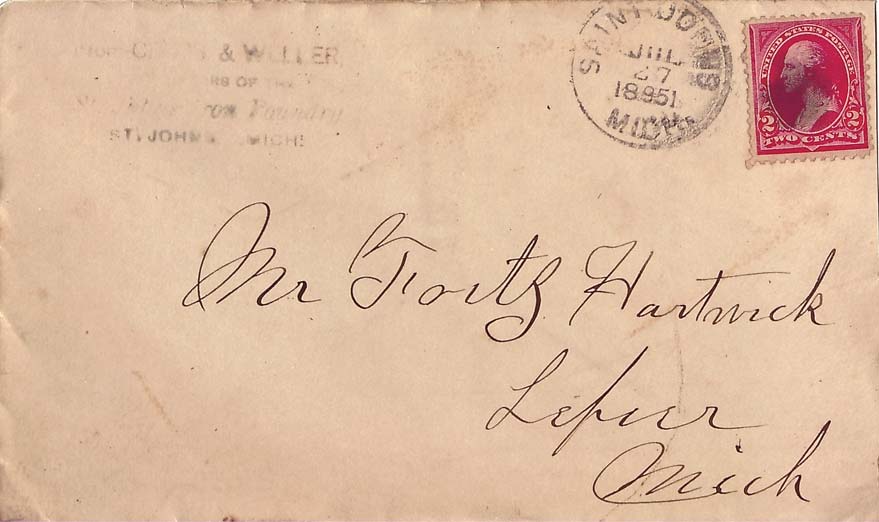 & WELLER,
OF THE
Foundry
ST. JOHNS MICH:
SAINT JOHNS
JUL
27
1895
MICH.
UNITED STATES POSTAGE
2 2
TWO CENTS
Mr Hartwick
Mich